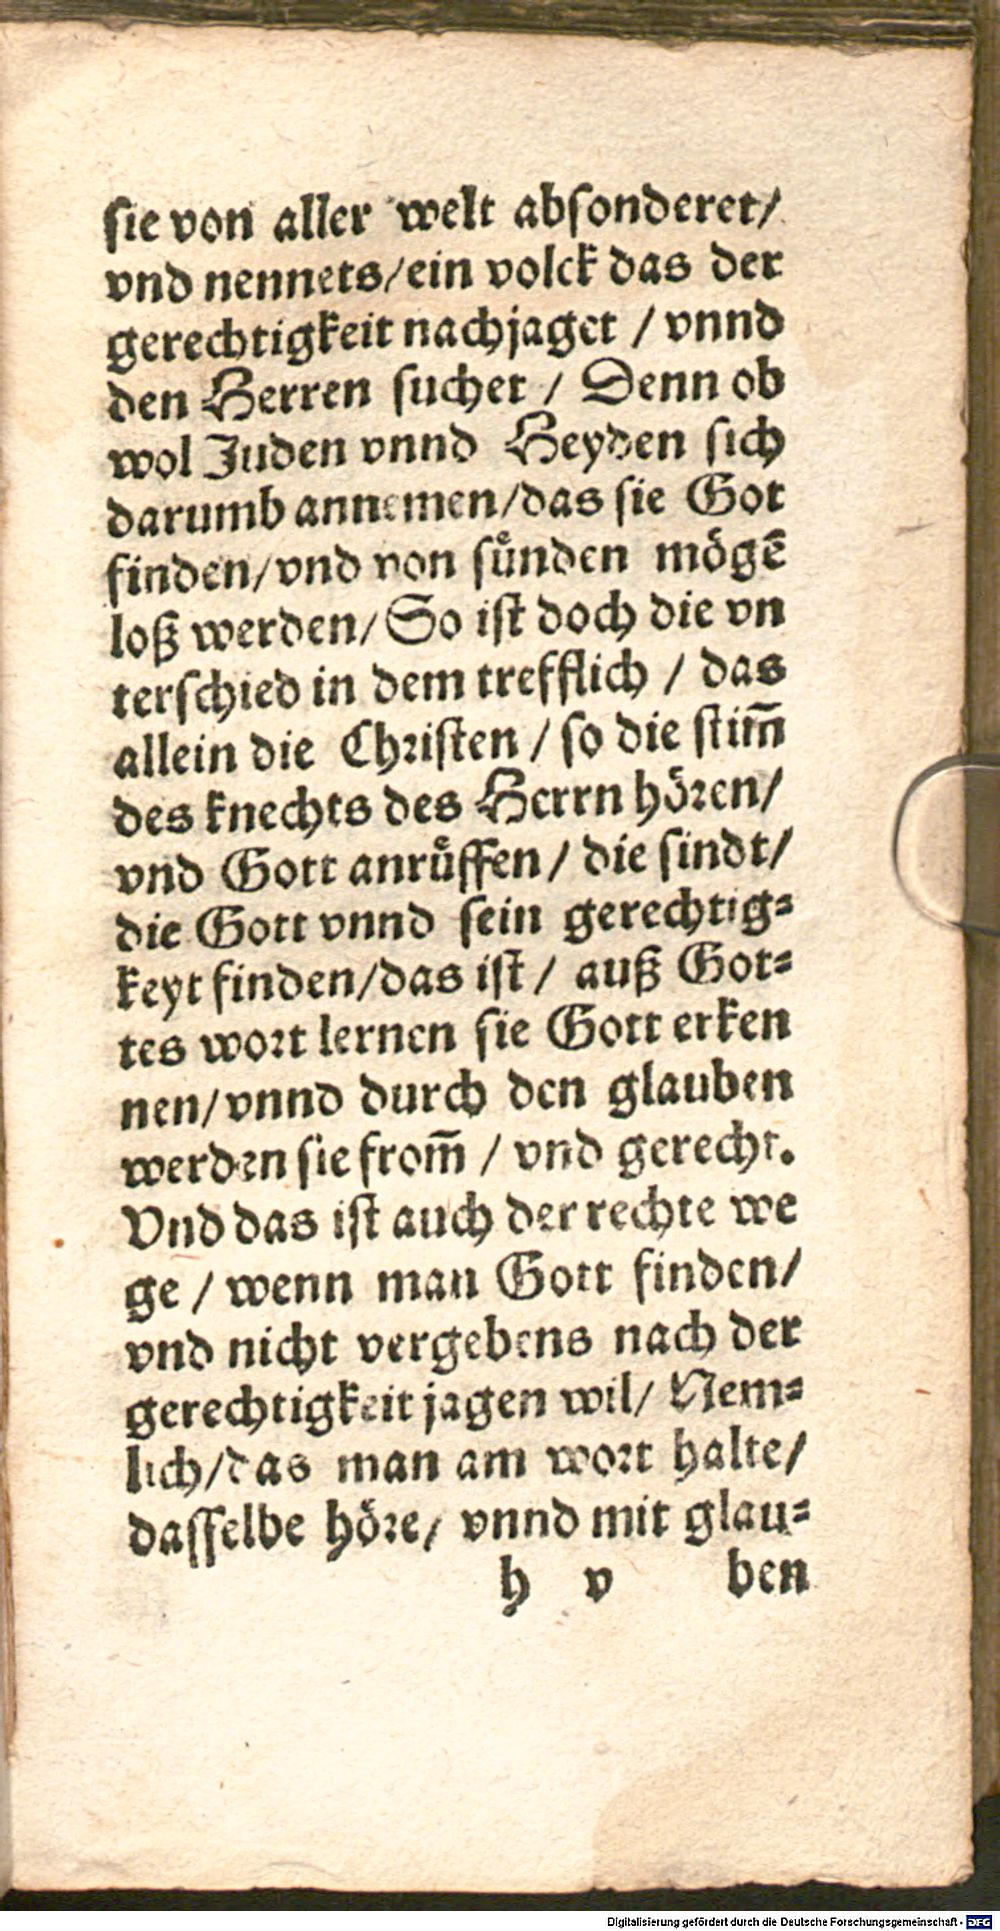 sie von aller welt absonderet/
vnd nennets/ein volck das der
gerechtigkeit nachjaget / vnnd
den Herren suchet / Denn ob
wol Juden vnnd Heyden sich
darumb annemen/das sie Got
finden/vnd von sünden mögē
loß werden/So ist doch die vn
terschied in dem trefflich / das
allein die Christen / so die stim̄
des knechts des Herrn hören/
vnd Gott anrůffen / die sindt/
die Gott vnnd sein gerechtig-
keyt finden/das ist / auß Got-
tes wort lernen sie Gott erken
nen/vnnd durch den glauben
werden sie from̄ / vnd gerecht.
Vnd das ist auch der rechte we
ge / wenn man Gott finden/
vnd nicht vergebens nach der
gerechtigkeit jagen wil/ Nem-
lich/das man am wort halte/
dasselbe höre/ vnnd mit glau-
h v ben
Digitalisierung gefördert durch die Deutsche Forschungsgemeinschaft - DFG